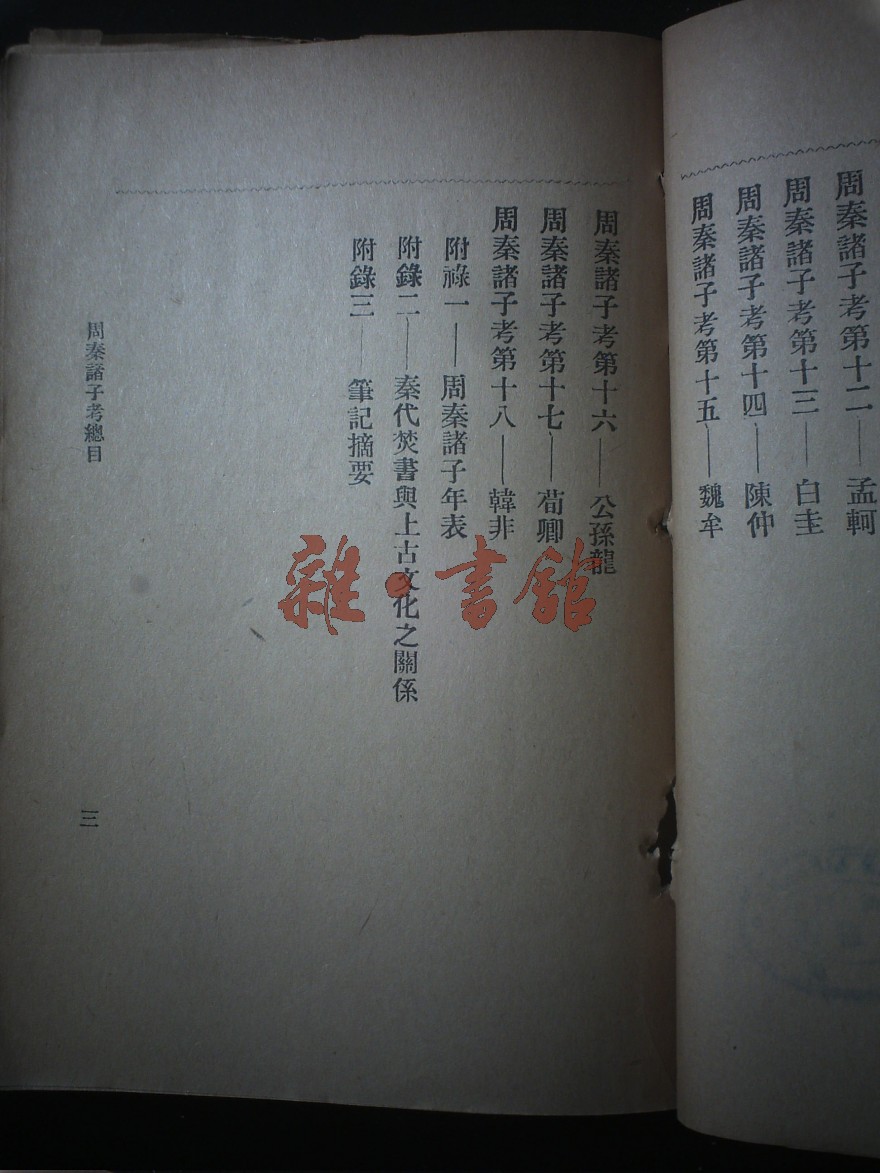 周秦諸子考第十二——孟軻
周秦諸子考第十三——白圭
周秦諸子考第十四——陳仲
周秦諸子考第十五——魏牟
周秦諸子考第十六——公孫龍
周秦諸子考第十七——荀卿
周秦諸子考第十八——韓非
附祿一——周秦諸子年表
附錄二——秦代焚書與上古文化之關係
附錄三——筆記摘要
周秦諸子考總目
三
雜·書館